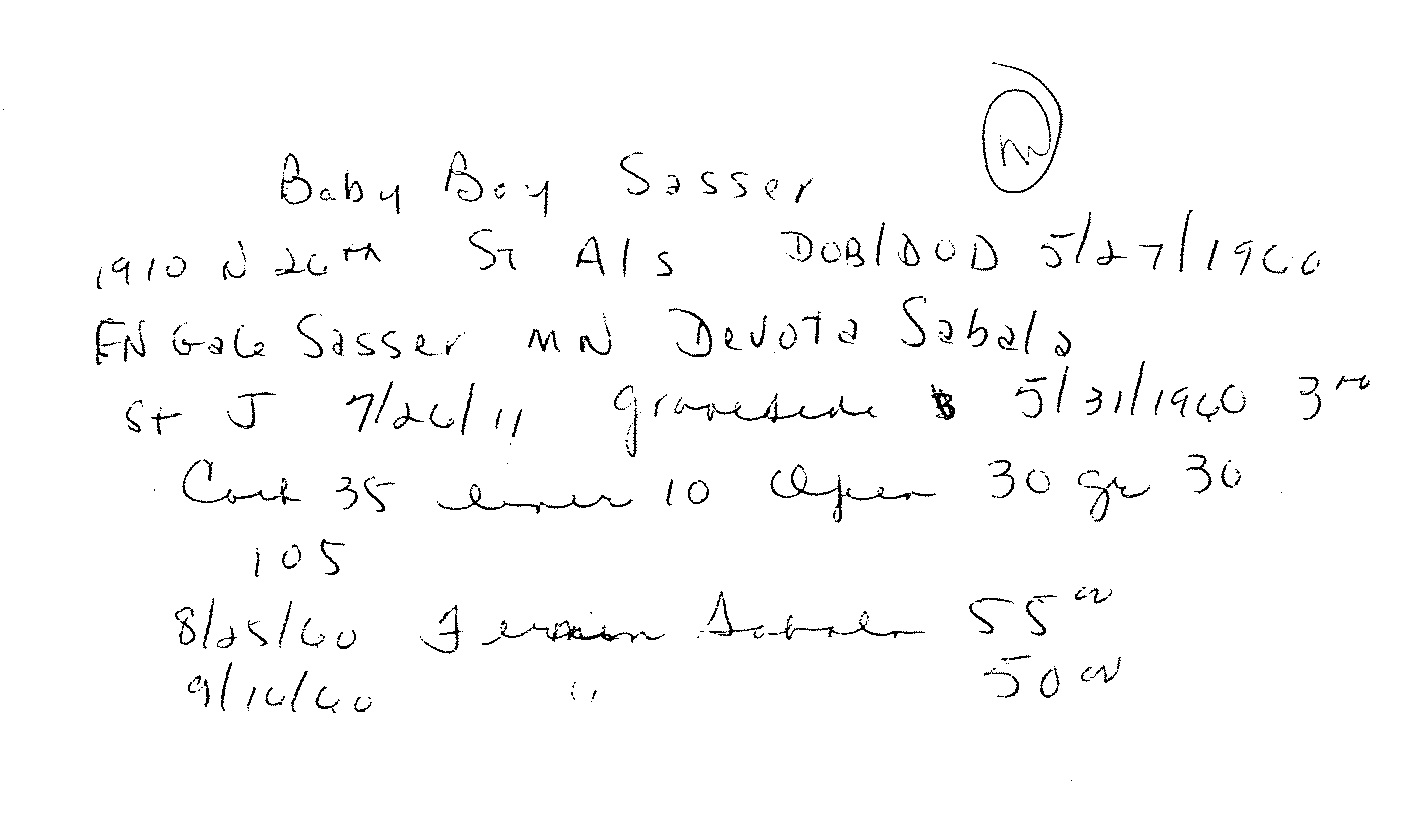 Baby Boy Sasser
1910 N 26TH ST A/S DOB/DOD 5/27/1960
FN Gale Sasser MN Devota Sabala
St J 7/26/11 graveside B 5/31/1960 3 00
Cask 35 liner 10 Open 30 gr 30
105
8/25/60 Fermin Sabala 55 00
9/16/60 " 50 00